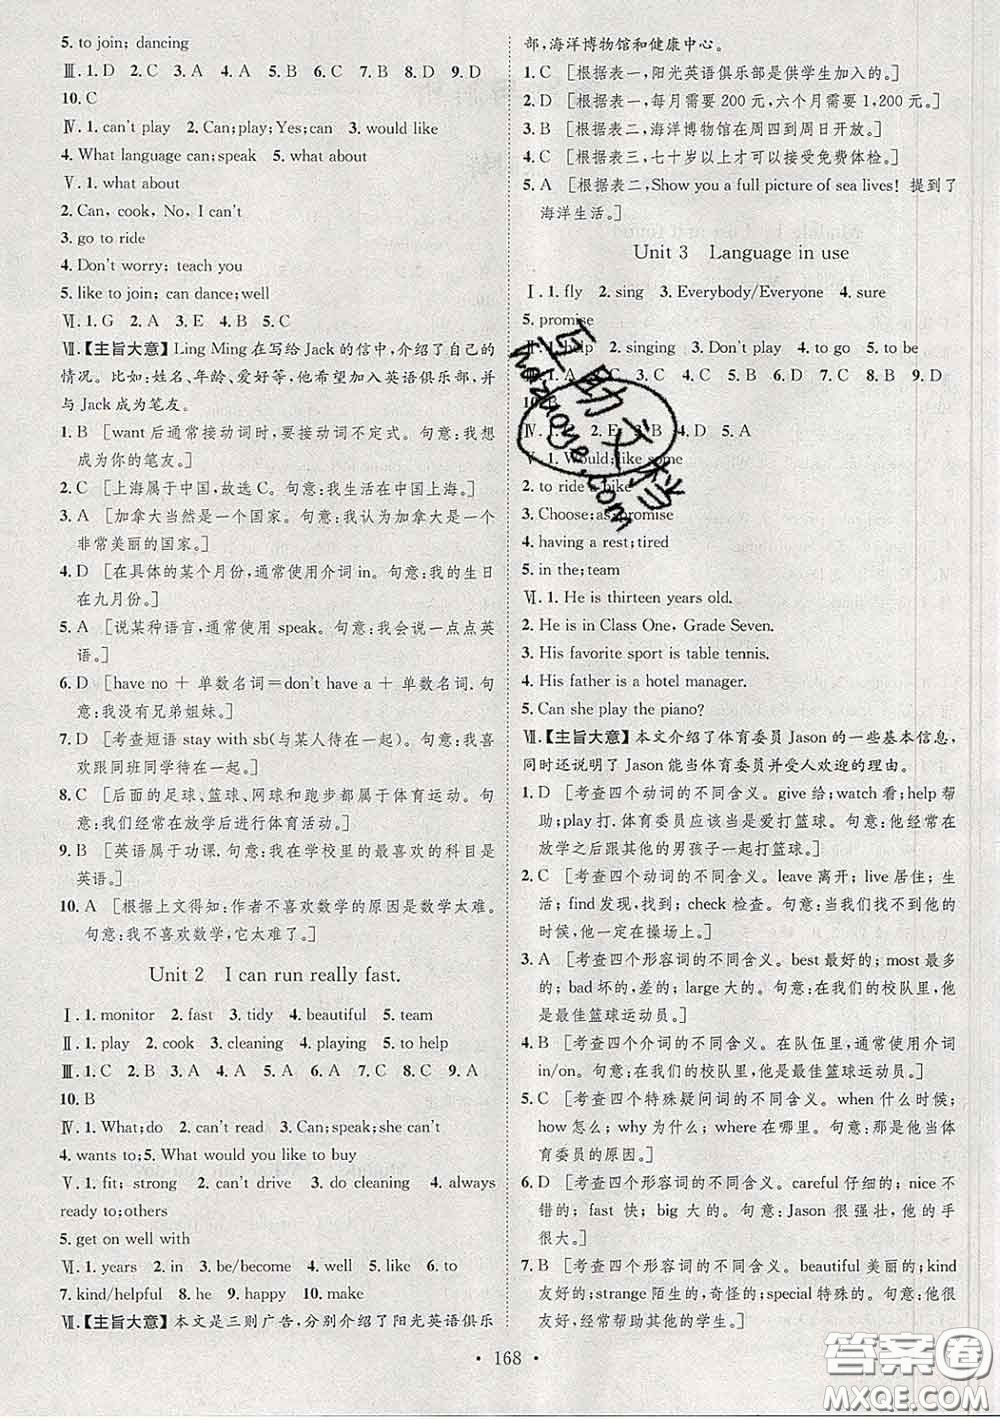 5. to join; dancing
Ⅲ. 1. D 2. C 3. A 4. A 5. B 6. C 7. D 8. D 9. D
10. C
Ⅳ. 1. can't play 2. Can;play;Yes;can 3. would like
4. What language can;speak 5. what about
Ⅴ. 1. what about
2. Can, cook, No, I can't
3. go to ride
4. Don't worry; teach you
5. like to join; can dance;well
Ⅵ. 1. G 2. A 3. E 4. B 5. C
Ⅶ.【主旨大意】Ling Ming 在写给 Jack 的信中,介绍了自己的
情况。比如:姓名、年龄、爱好等,他希望加入英语俱乐部,并
与 Jack 成为笔友。
1. B [want 后通常接动词时,要接动词不定式。句意:我想
成为你的笔友。]
2. C [上海属于中国,故选 C。句意:我生活在中国上海。]
3. A [加拿大当然是一个国家。句意:我认为加拿大是一个
非常美丽的国家。]
4. D [在具体的某个月份,通常使用介词 in。句意:我的生日
在九月份。]
5. A [说某种语言,通常使用 speak。句意:我会说一点点英
语。]
6. D [have no + 单数名词=don't have a + 单数名词. 句
意:我没有兄弟姐妹。]
7. D [考查短语 stay with sb(与某人待在一起)。句意:我喜
欢跟同班同学待在一起。]
8. C [后面的足球、篮球、网球和跑步都属于体育运动。句
意:我们经常在放学后进行体育活动。]
9. B [英语属于功课. 句意:我在学校里的最喜欢的科目是
英语。]
10. A [根据上文得知:作者不喜欢数学的原因是数学太难。
句意:我不喜欢数学,它太难了。]
Unit 2 I can run really fast.
Ⅰ. 1. monitor 2. fast 3. tidy 4. beautiful 5. team
Ⅱ. 1. play 2. cook 3. cleaning 4. playing 5. to help
Ⅲ. 1. C 2. B 3. A 4. A 5. B 6. A 7. B 8. C 9. A
10. B
Ⅳ. 1. What;do 2. can't read 3. Can;speak;she can't
4. wants to;5. What would you like to buy
Ⅴ. 1. fit; strong 2. can't drive 3. do cleaning 4. always
ready to;others
5. get on well with
Ⅵ. 1. years 2. in 3. be/become 4. well 5. like 6. to
7. kind/helpful 8. he 9. happy 10. make
Ⅶ.【主旨大意】本文是三则广告,分别介绍了阳光英语俱乐
部,海洋博物馆和健康中心。
1. C [根据表一,阳光英语俱乐部是供学生加入的。]
2. D [根据表一,每月需要 200 元,六个月需要 1,200 元。]
3. B [根据表二,海洋博物馆在周四到周日开放。]
4. C [根据表三,七十岁以上才可以接受免费体检。]
5. A [根据表二,Show you a full picture of sea lives! 提到了
海洋生活。]
Unit 3 Language in use
Ⅰ. 1. fly 2. sing 3. Everybody/Everyone 4. sure
5. promise
Ⅱ. 1. help 2. singing 3. Don't play 4. to go 5. to be
Ⅲ. 1. A 2. C 3. C 4. C 5. D 6. D 7. C 8. B 9. D
10. B
Ⅳ. 1. 2. E 3. B 4. D 5. A
Ⅴ. 1. Would; like some
2. to ride a bike
3. Choose;as;promise
4. having a rest;tired
5. in the;team
Ⅵ. 1. He is thirteen years old.
2. He is in Class One, Grade Seven.
3. His favorite sport is table tennis.
4. His father is a hotel manager.
5. Can she play the piano?
Ⅶ.【主旨大意】本文介绍了体育委员 Jason 的一些基本信息,
同时还说明了 Jason 能当体育委员并受人欢迎的理由。
1. D [考查四个动词的不同含义。give 给;watch 看;help 帮
助;play 打. 体育委员应该当是爱打篮球。句意:他经常在
放学之后跟其他的男孩子一起打篮球。]
2. C [考查四个动词的不同含义。leave 离开; live 居住; 生
活; find 发现,找到; check 检查。句意:当我们找不到他的
时候,他一定在操场上。]
3. A [考查四个形容词的不同含义。best 最好的;most 最多
的; bad 坏的,差的; large 大的。句意:在我们的校队里,他
是最佳篮球运动员。]
4. B [考查四个介词的不同含义。在队伍里,通常使用介词
in/on。句意:在我们的校队里,他是最佳篮球运动员。]
5. C [考查四个特殊疑问词的不同含义。when 什么时候;
how 怎么; why 为什么; where 在哪里。句意:那是他当体
育委员的原因。]
6. D [考查四个形容词的不同含义。careful 仔细的; nice 不
错的; fast 快; big 大的。句意: Jason 很强壮, 他的手
很大。]
7. B [考查四个形容词的不同含义。beautiful 美丽的;kind
友好的;strange 陌生的,奇怪的;special 特殊的。句意:他很
友好,经常帮助其他的学生。]
· 168 ·
互助文档
hdzuoye.com
答案圈
MXQE.COM